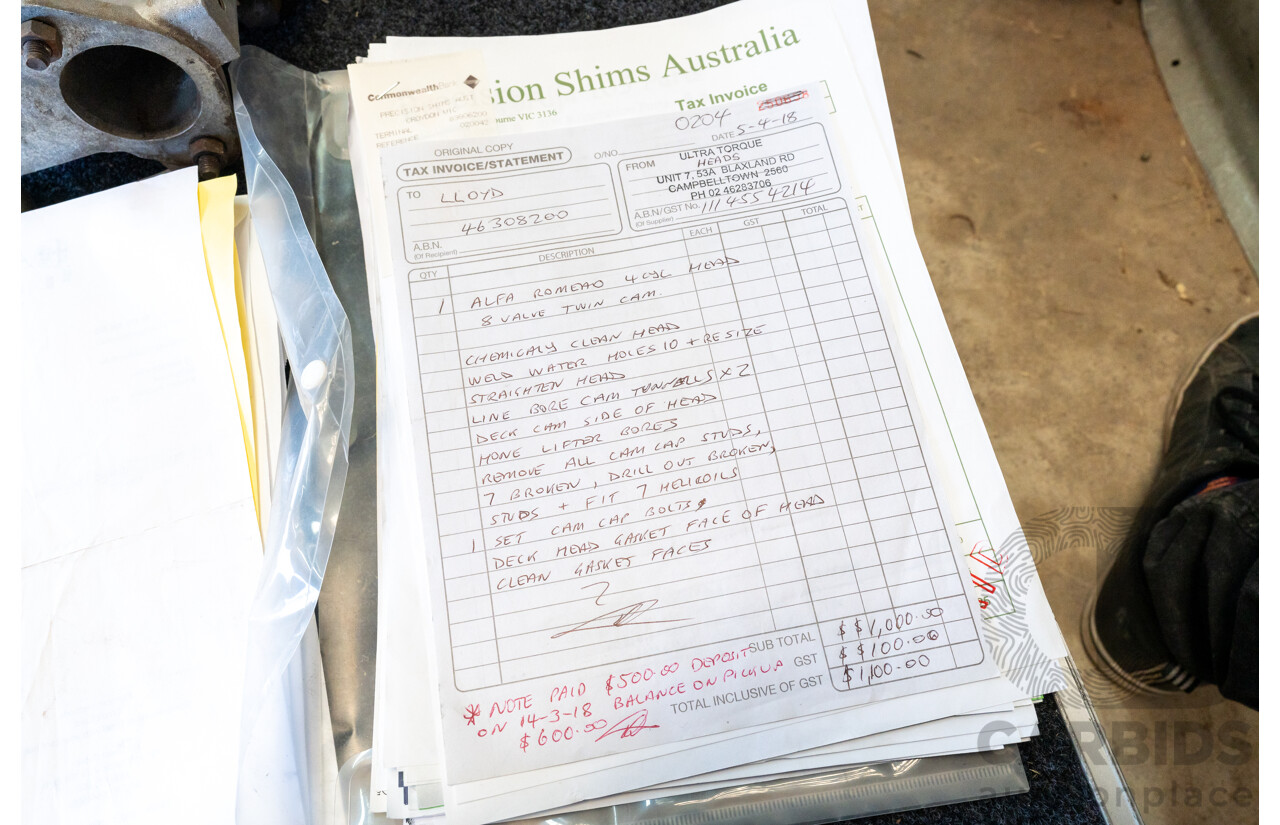 sion Shims Australia
urne VIC 3136
Tax Invoice
CommonwealthBank
TERMINAL
REFERENCE
ORIGINAL COPY
TAX INVOICE/STATEMENT
0204
O/NO.
DATE 5-4-18
TO LLOYD
46308200
A.B.N.
(Of Recipient)
FROM ULTRA TORQUE
HEADS
UNIT 7, 53A BLAXLAND RD
CAMPBELLTOWN 2560
PH 02 46283706
A.B.N/GST No. 111 4554214
(Of Supplier)
QTY DESCRIPTION EACH GST TOTAL
1 ALFA ROMEAO 4CYL HEAD
8 VALVE TWIN CAM.
CHEMICALY CLEAN HEAD
WELD WATER HOLES 10 + RESIZE
STRAIGHTEN HEAD
LINE BORE CAM TUNNELLS X 2
DECK CAM SIDE OF HEAD
HONE LIFTER BORES
REMOVE ALL CAM CAP STUDS,
7 BROKEN, DRILL OUT BROKEN,
STUDS + FIT 7 HELICOILS
1 SET CAM CAP BOLTS
DECK HEAD GASKET FACE OF HEAD
CLEAN GASKET FACES
SUB TOTAL $ $1,000.00
GST $ $100.00
TOTAL INCLUSIVE OF GST $1,100.00
* NOTE PAID $500.00 DEPOSIT
ON 14-3-18 BALANCE ON PICKUP
$600.00
CARBIDS
auctionplace